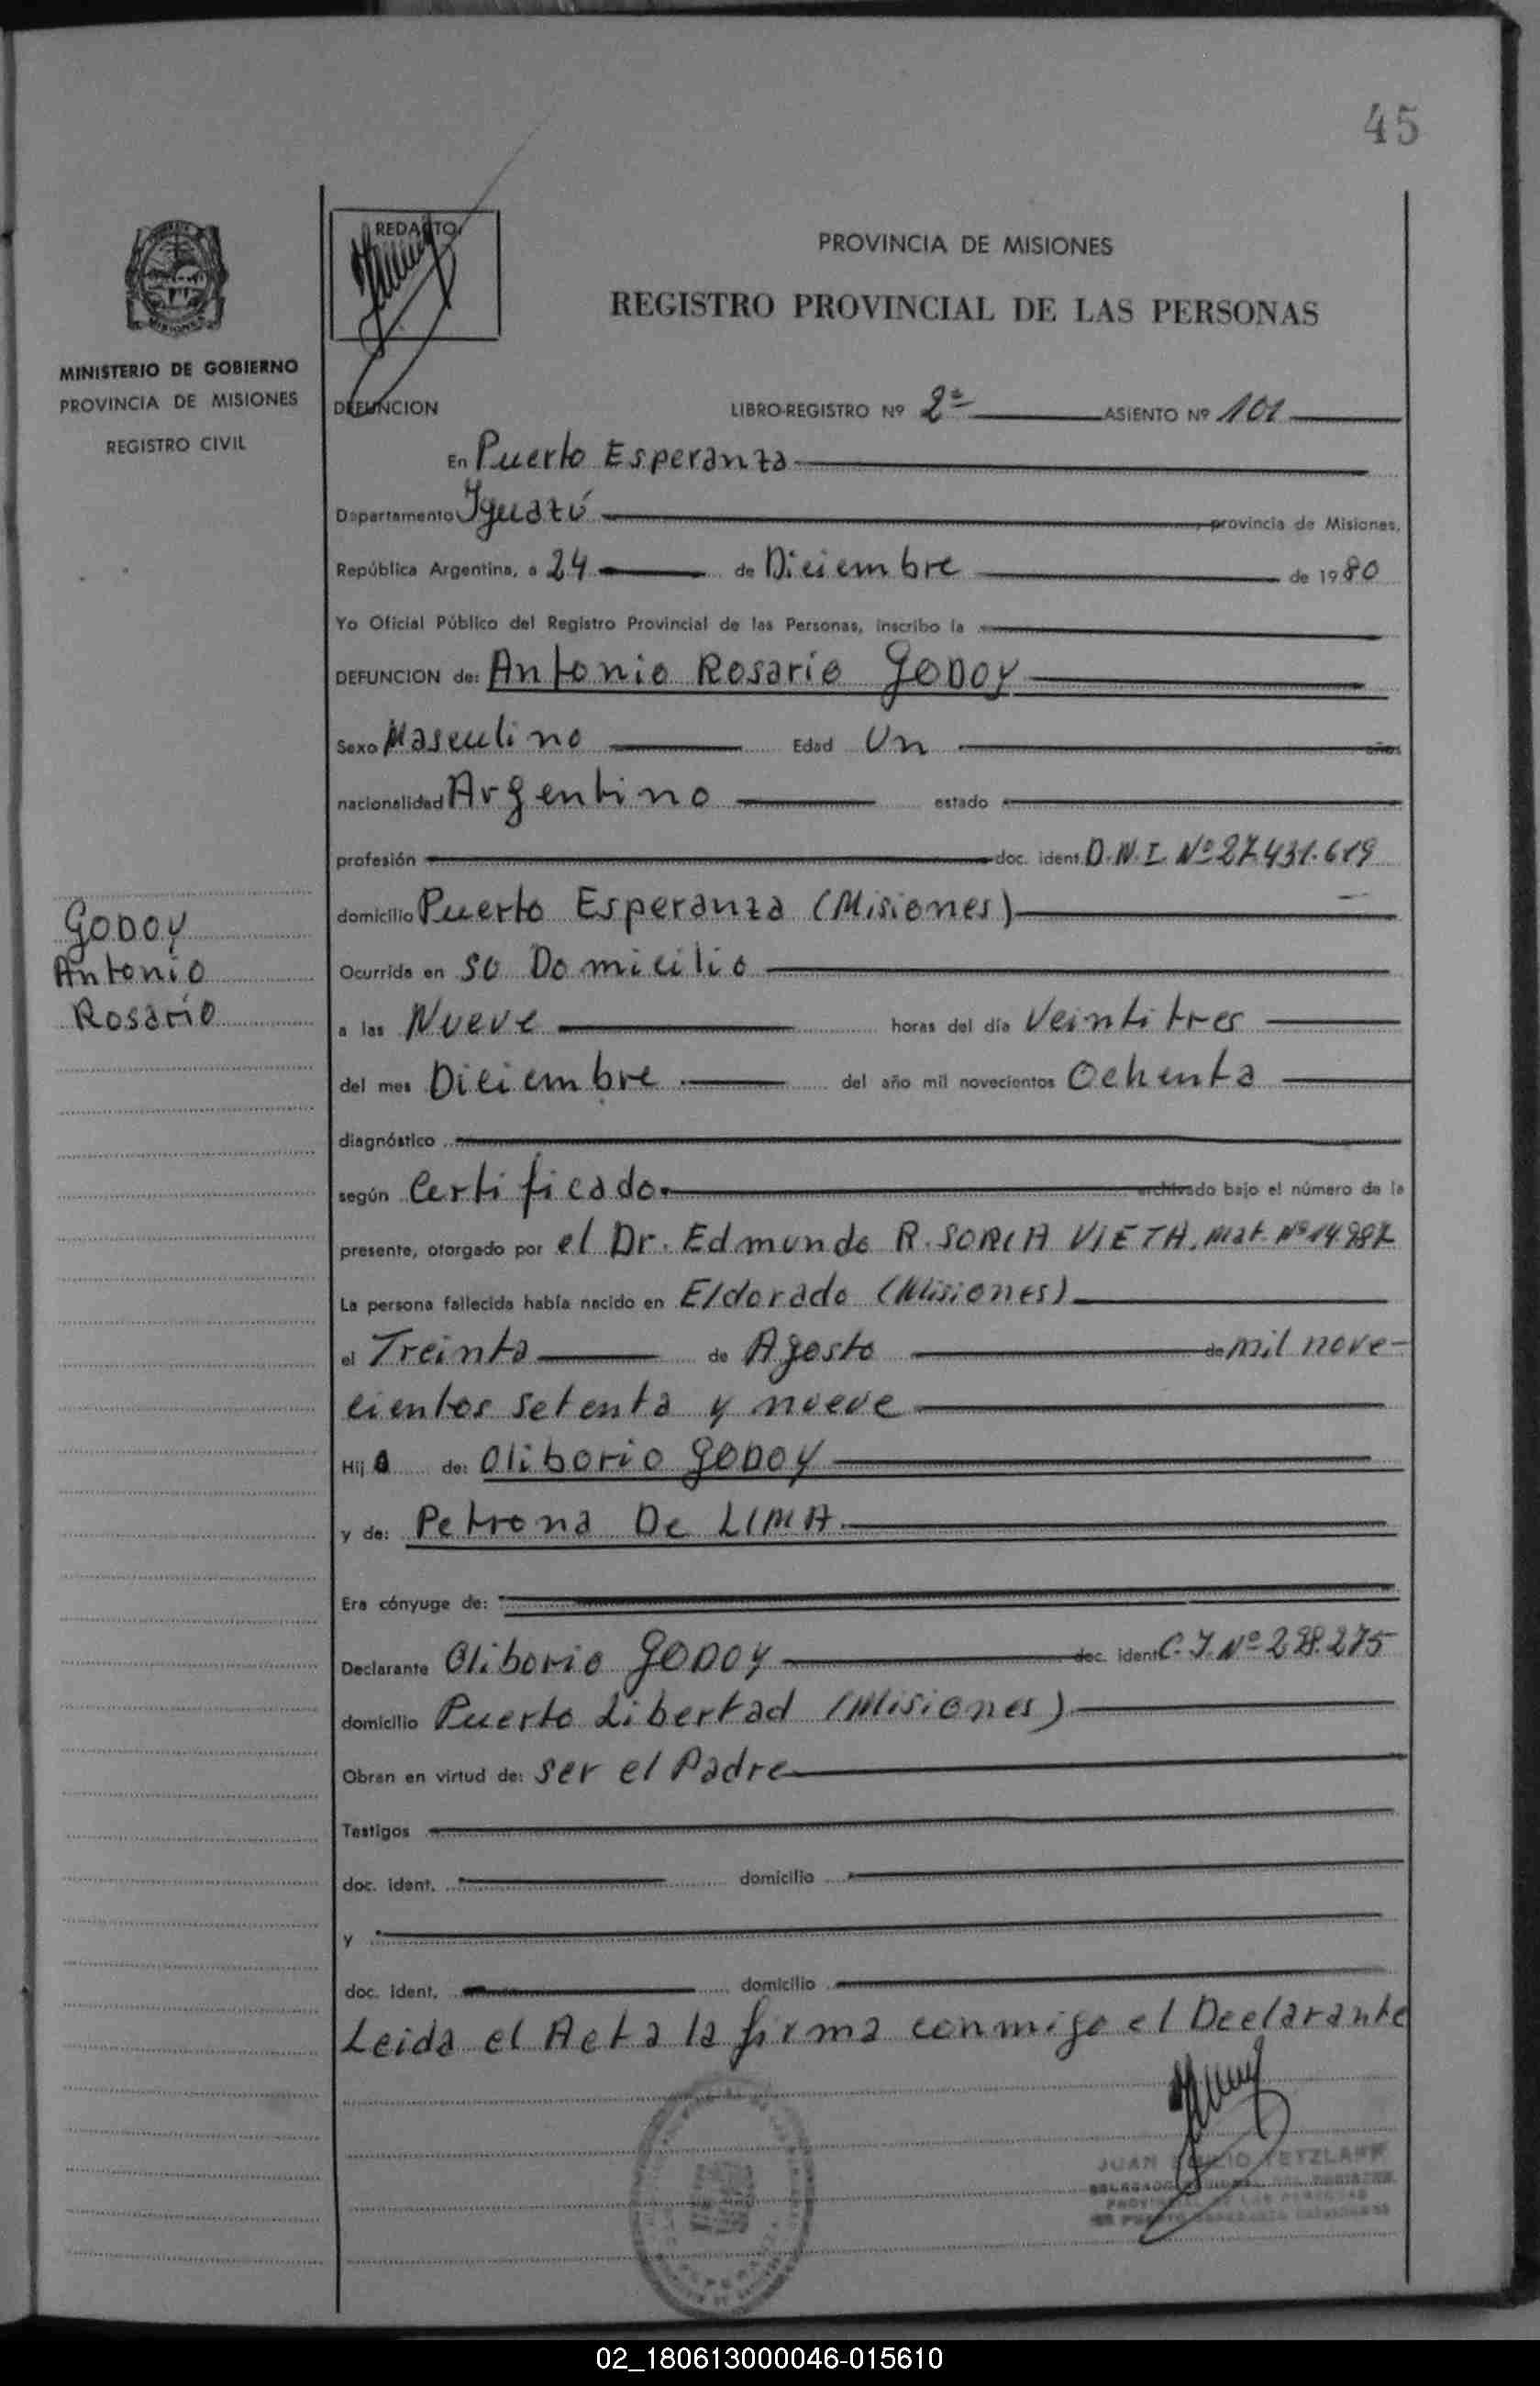 45
REDACTO
PROVINCIA DE MISIONES
REGISTRO PROVINCIAL DE LAS PERSONAS
MINISTERIO DE GOBIERNO
PROVINCIA DE MISIONES
REGISTRO CIVIL
DEFUNCION LIBRO-REGISTRO Nº 2º ASIENTO Nº 101
En Puerto Esperanza
Departamento Iguazú, provincia de Misiones,
República Argentina, a 24 de Diciembre de 1980
Yo Oficial Público del Registro Provincial de las Personas, inscribo la
DEFUNCION de: Antonio Rosario GODOY
Sexo Masculino Edad Un años
nacionalidad Argentino estado
profesión doc. ident. D.N.I. Nº 27.431.619
domicilio Puerto Esperanza (Misiones)
GODOY
Antonio
Rosario
Ocurrida en su Domicilio
a las Nueve horas del día Veintitres
del mes Diciembre del año mil novecientos Ochenta
diagnóstico
según Certificado. archivado bajo el número de la
presente, otorgado por el Dr. Edmundo R. SORIA VIETA. Mat. Nº 14.987
La persona fallecida había nacido en Eldorado (Misiones)
el Treinta de Agosto de mil nove-
cientos setenta y nueve
Hijo de: Oliborio GODOY
y de: Petrona De LIMA.
Era cónyuge de:
Declarante Oliborio GODOY doc. ident. C.I. Nº 298.275
domicilio Puerto Libertad (Misiones)
Obran en virtud de: ser el Padre
Testigos
doc. ident. domicilio
y
doc. ident. domicilio
Leida el Acta la firma conmigo el Declarante
JUAN TETZLAFF
02_180613000046-015610